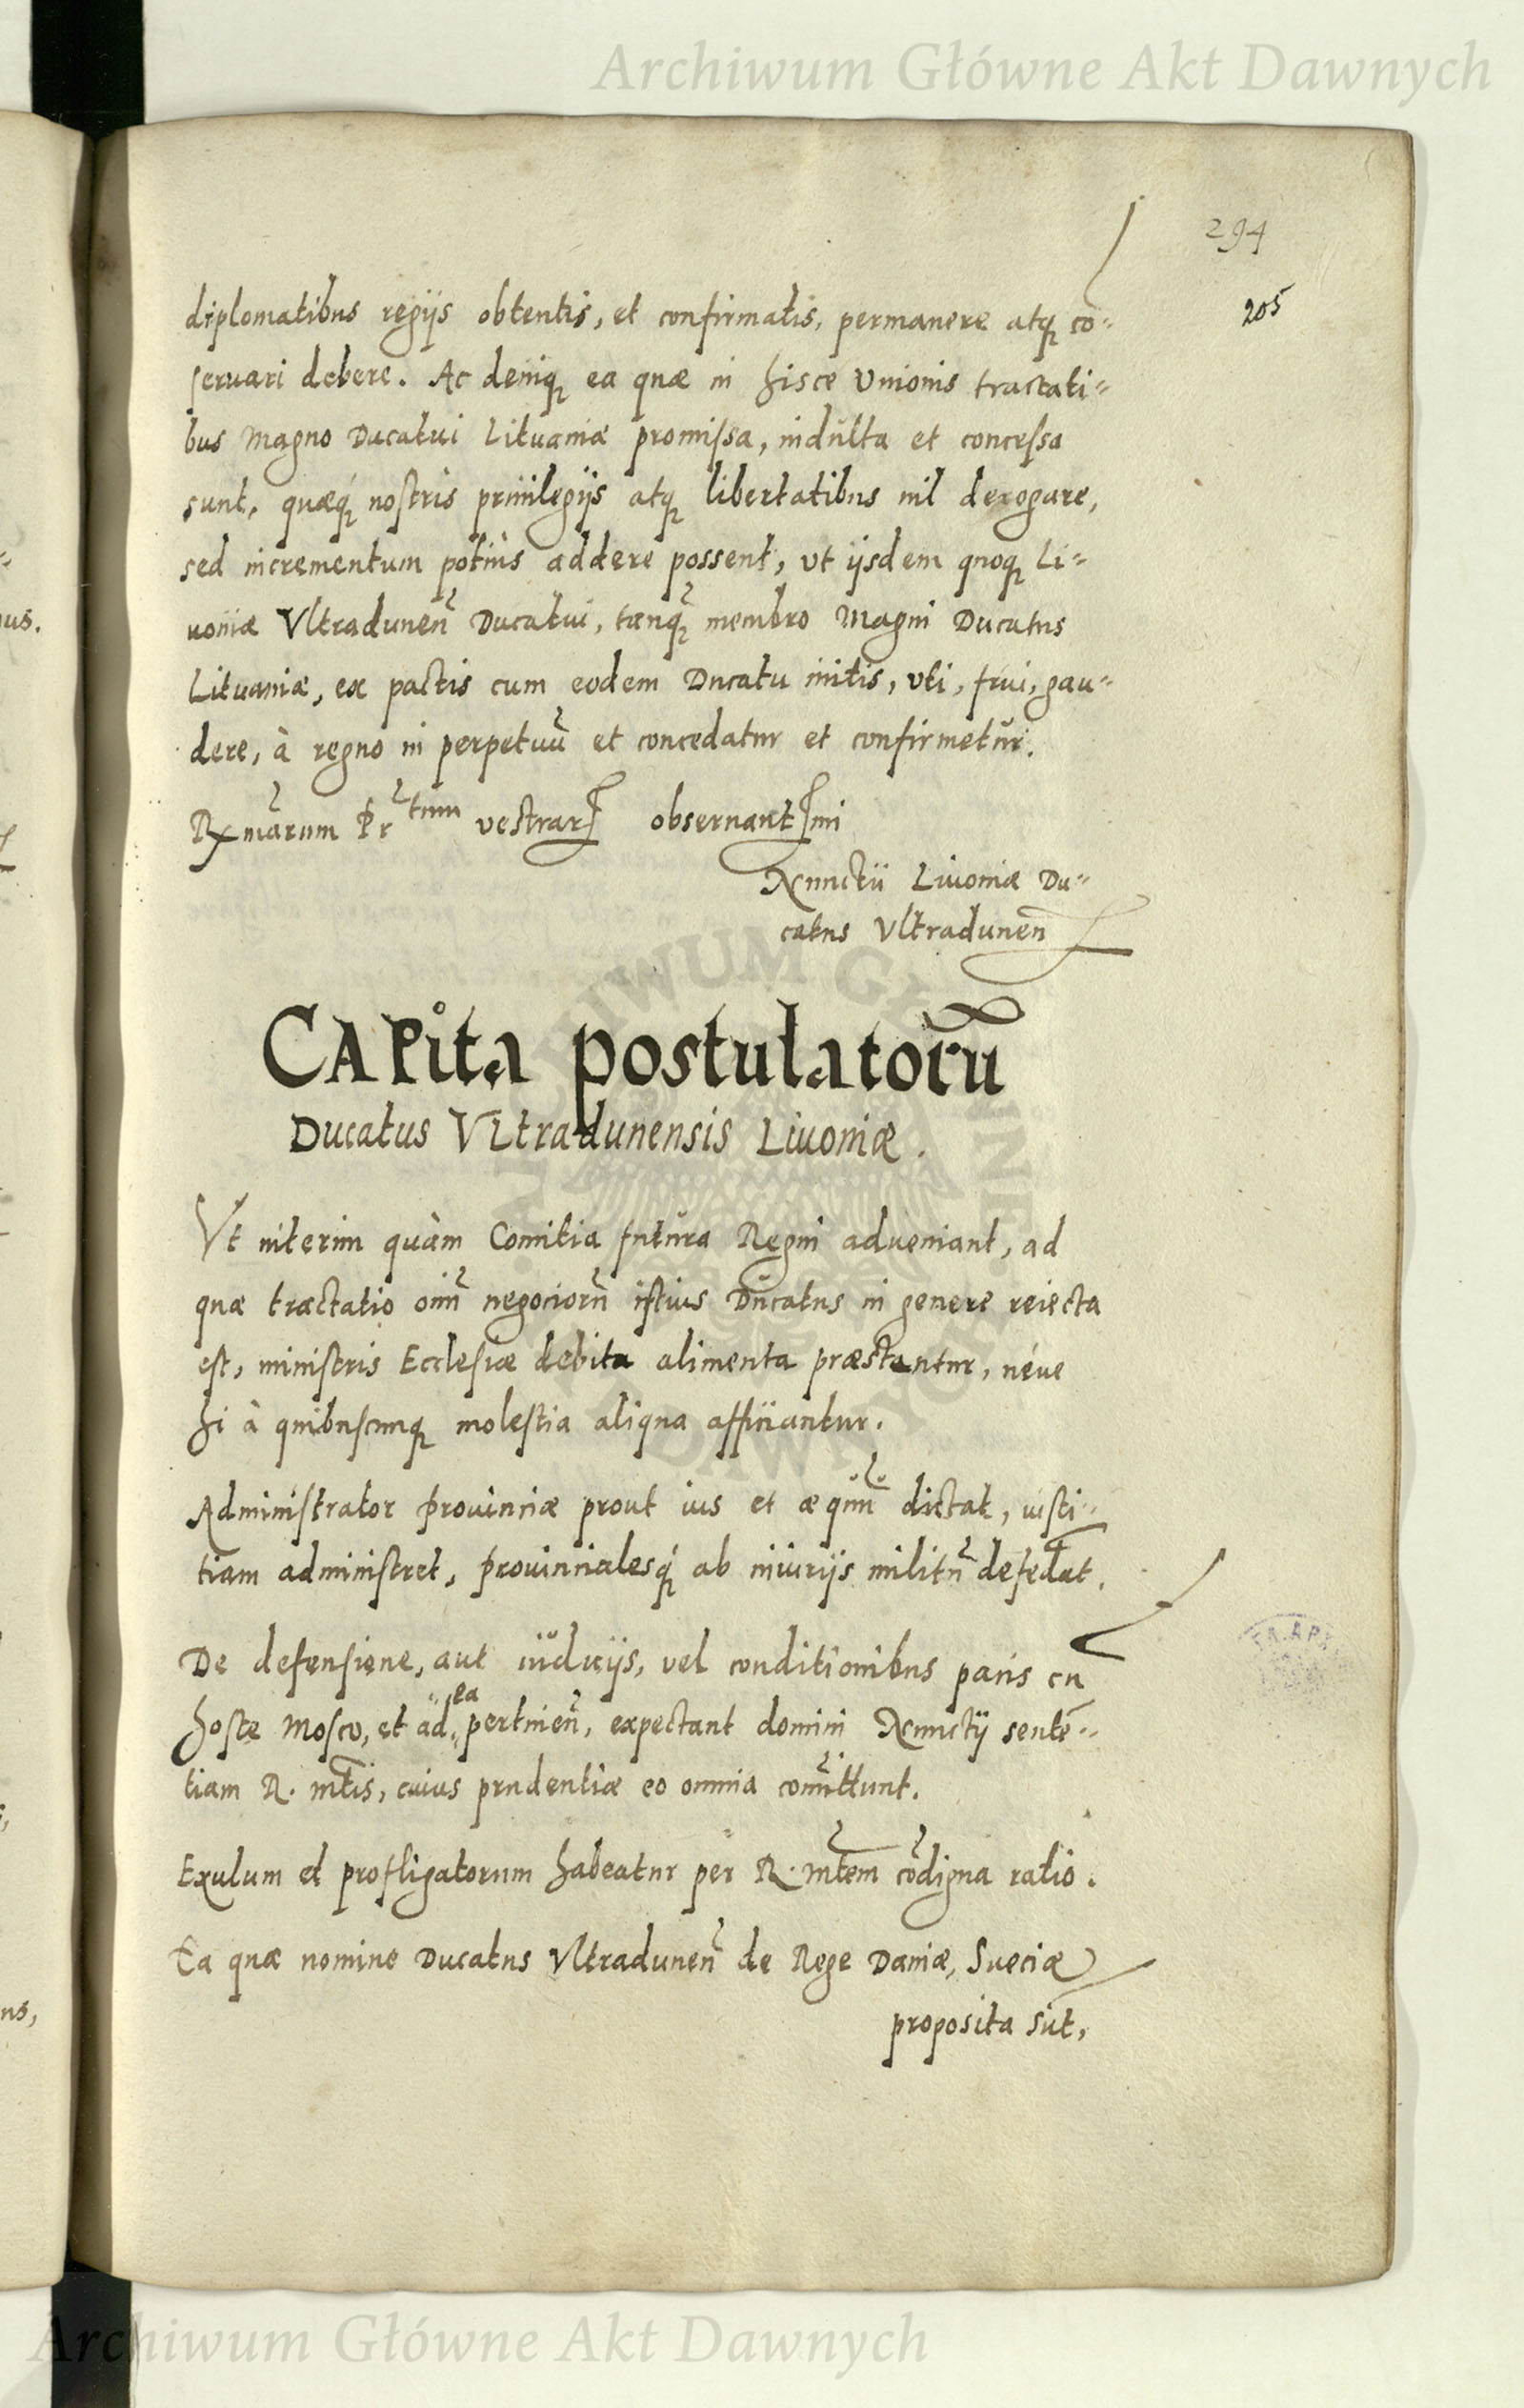 Archiwum Główne Akt Dawnych
294
205
diplomatibus regijs obtentis, et confirmatis, permanere atq; cō=
seruari debere. Ac deniq; ea quæ in hisce Vnionis tractati=
bus Magno Ducatui Lituaniæ promissa, indulta et concessa
sunt, quæq; nostris priuilegijs atq; libertatibus nil derogare,
sed incrementum potius addere possent, vt ijsdem quoq; Li=
uoniæ Vltradunen̄ Ducatui, tanq̃ membro Magni Ducatus
Lituaniæ, ex pactis cum eodem Ducatu initis, vti, frui, gau=
dere, à regno in perpetuū et concedatur et confirmetur.
Rx̃marum Pr̃tum vestrarꝝ obseruantssmi
Nunctii Liuoniæ Du=
catus Vltradunen̄
CAPita postulatorū
Ducatus Vltradunensis Liuoniæ.
Vt interim quàm Comitia futura Regni adueniant, ad
quæ tractatio oīm̃ negociorū istius Ducatus in genere reiecta
est, ministris Ecclesiæ debita alimenta præstantur, néue
hi à quibuscunq; molestia aliqua afficiantur.
Administrator prouinciæ prout ius et æquū dictat, iusti=
tiam administret, prouincialesq; ab iniurijs militū defēdat.
De defensione, aut iudicijs, vel conditionibus pacis cū
hoste Mosco, et ad ea pertinen̄, expectant domini Nunctij sentē=
tiam R. Mt̃is, cuius prudentiæ eo omnia com̃ittunt.
Exulum et profligatorum habeatur per R. Mt̃em cōdigna ratio.
Ea quæ nomine Ducatus Vltradunen̄ de Rege Daniæ, Sueciæ
proposita sūt,
Archiwum Główne Akt Dawnych